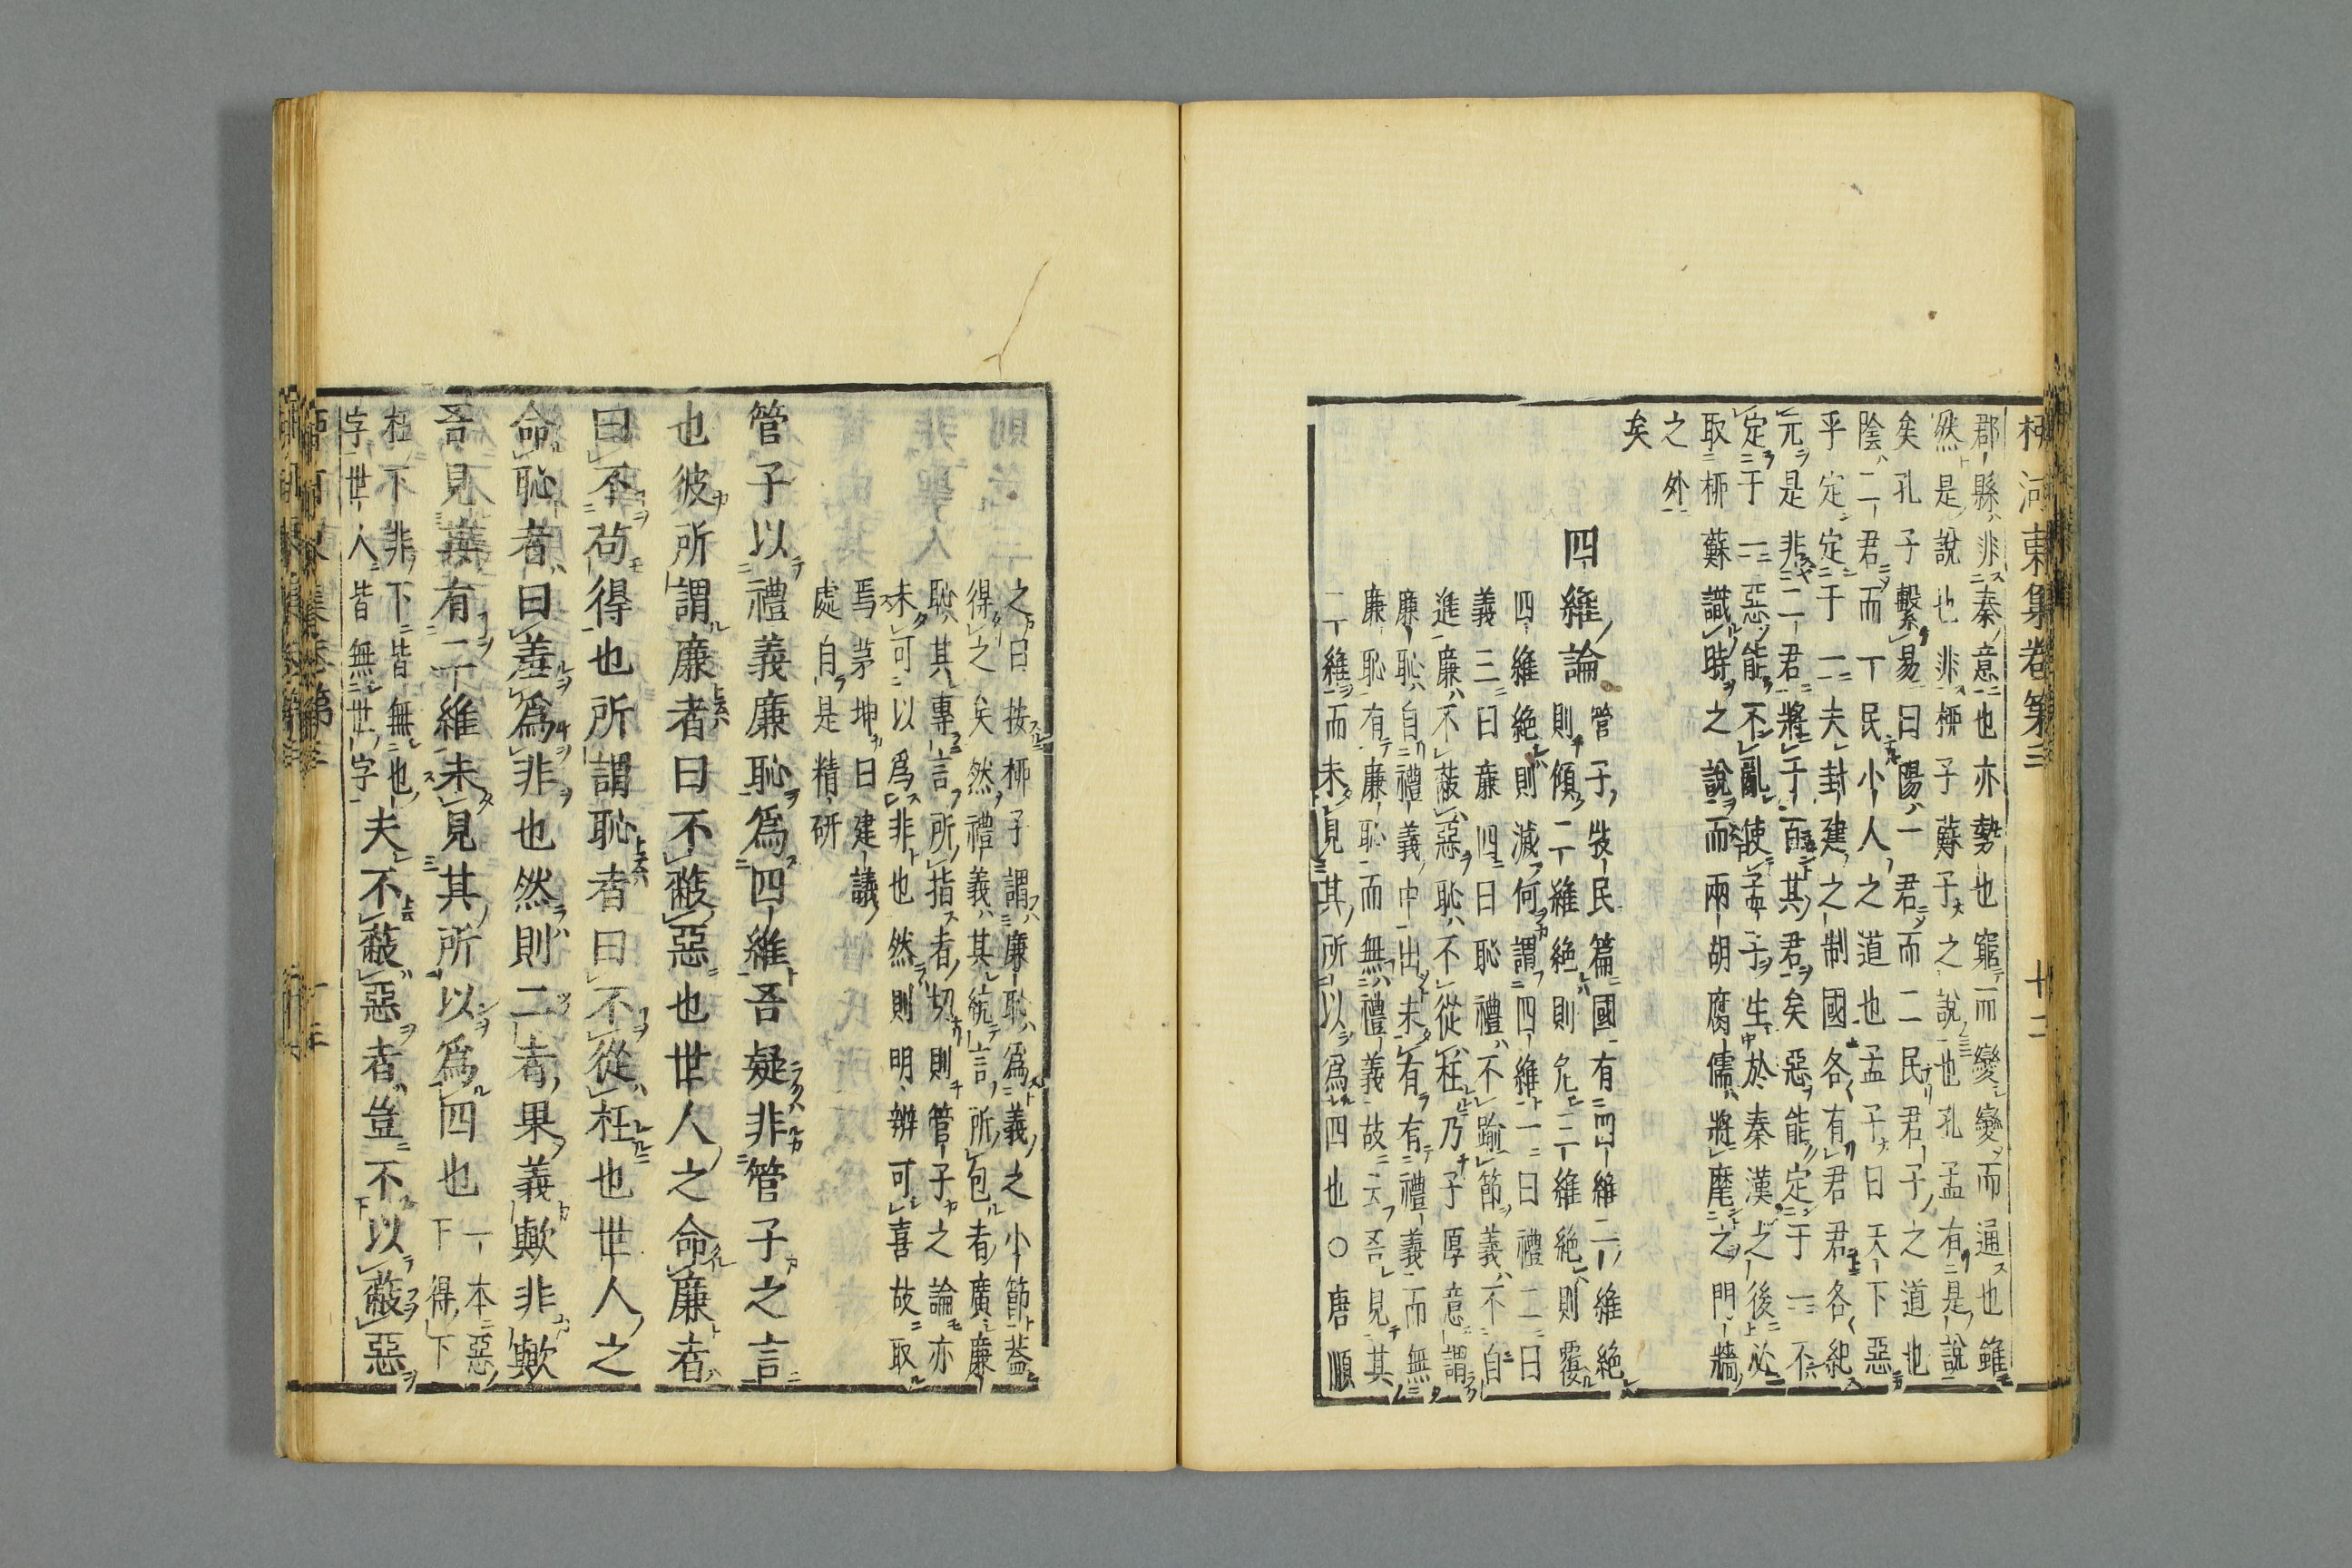 柳河東集卷第三
十二
郡縣非秦意也亦勢也窮而變變而通也雖
然是說也非柳子蘇子之說也孔孟有是說
矣孔子繫易曰陽一君而二民君子之道也
陰二君而一民小人之道也孟子曰天下惡
乎定定于一夫封建之制國各有君君各紀
元是非二君將于百其君矣惡能定于一不
定于一惡能不亂使孟子生於秦漢之後必
取柳蘇識時之說而兩胡腐儒將麾之門牆
之外
矣
四維論
管子牧民篇國有四維二維絕
則傾二維絕則危三維絕則覆
四維絕則滅何謂四維一曰禮二曰
義三曰廉四曰恥禮不踰節義不自
進廉不蔽惡恥不從枉乃子厚意謂
廉恥自禮義中出未有有禮義而無
廉恥有廉恥而無禮義故云吾見其
二維而未見其所以爲四也○唐順
之曰按柳子謂廉恥爲義之小節葢
得之矣然禮義其統言所包者廣廉
恥其專言所指者切則管子之論亦
未可以爲非也然則明辨可喜故取
焉茅坤曰建議
處自是精研
管子以禮義廉恥爲四維吾疑非管子之言
也彼所謂廉者曰不蔽惡也世人之命廉者
曰不苟得也所謂恥者曰不從枉也世人之
命恥者曰羞爲非也然則二者果義歟非歟
吾見其有二維未見其所以爲四也一本惡
下得下
枉下非下皆無也
字世人皆無世字
夫不蔽惡者豈不以蔽惡